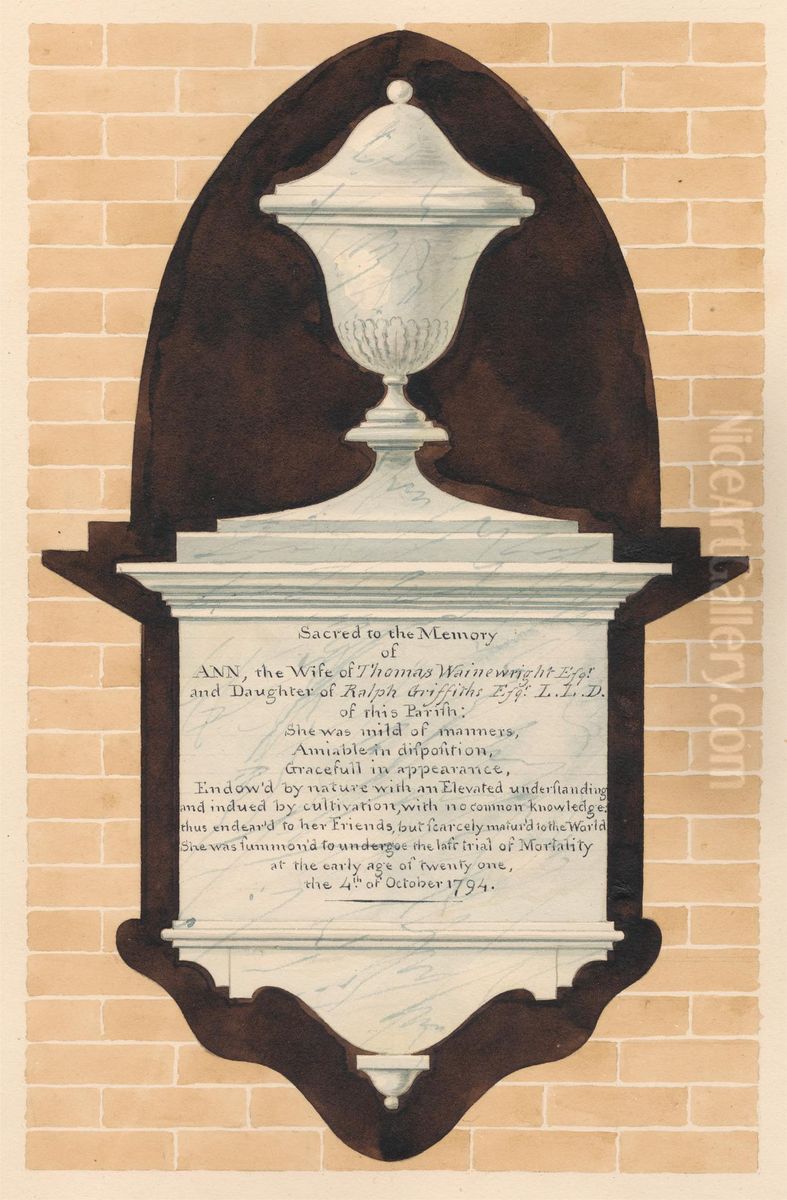 Sacred to the Memory
of
ANN, the Wife of Thomas Wainewright Esqr.
and Daughter of Ralph Griffiths Esqr. L.L.D.
of this Parish:
She was mild of manners,
Amiable in disposition,
Gracefull in appearance,
Endow'd by nature with an Elevated understanding
and indued by cultivation, with no common knowledge;
thus endear'd to her Friends, but scarcely matur'd to the World
She was summon'd to undergoe the last trial of Mortality
at the early age of twenty one,
the 4th of October 1794.
NiceArtGallery.com